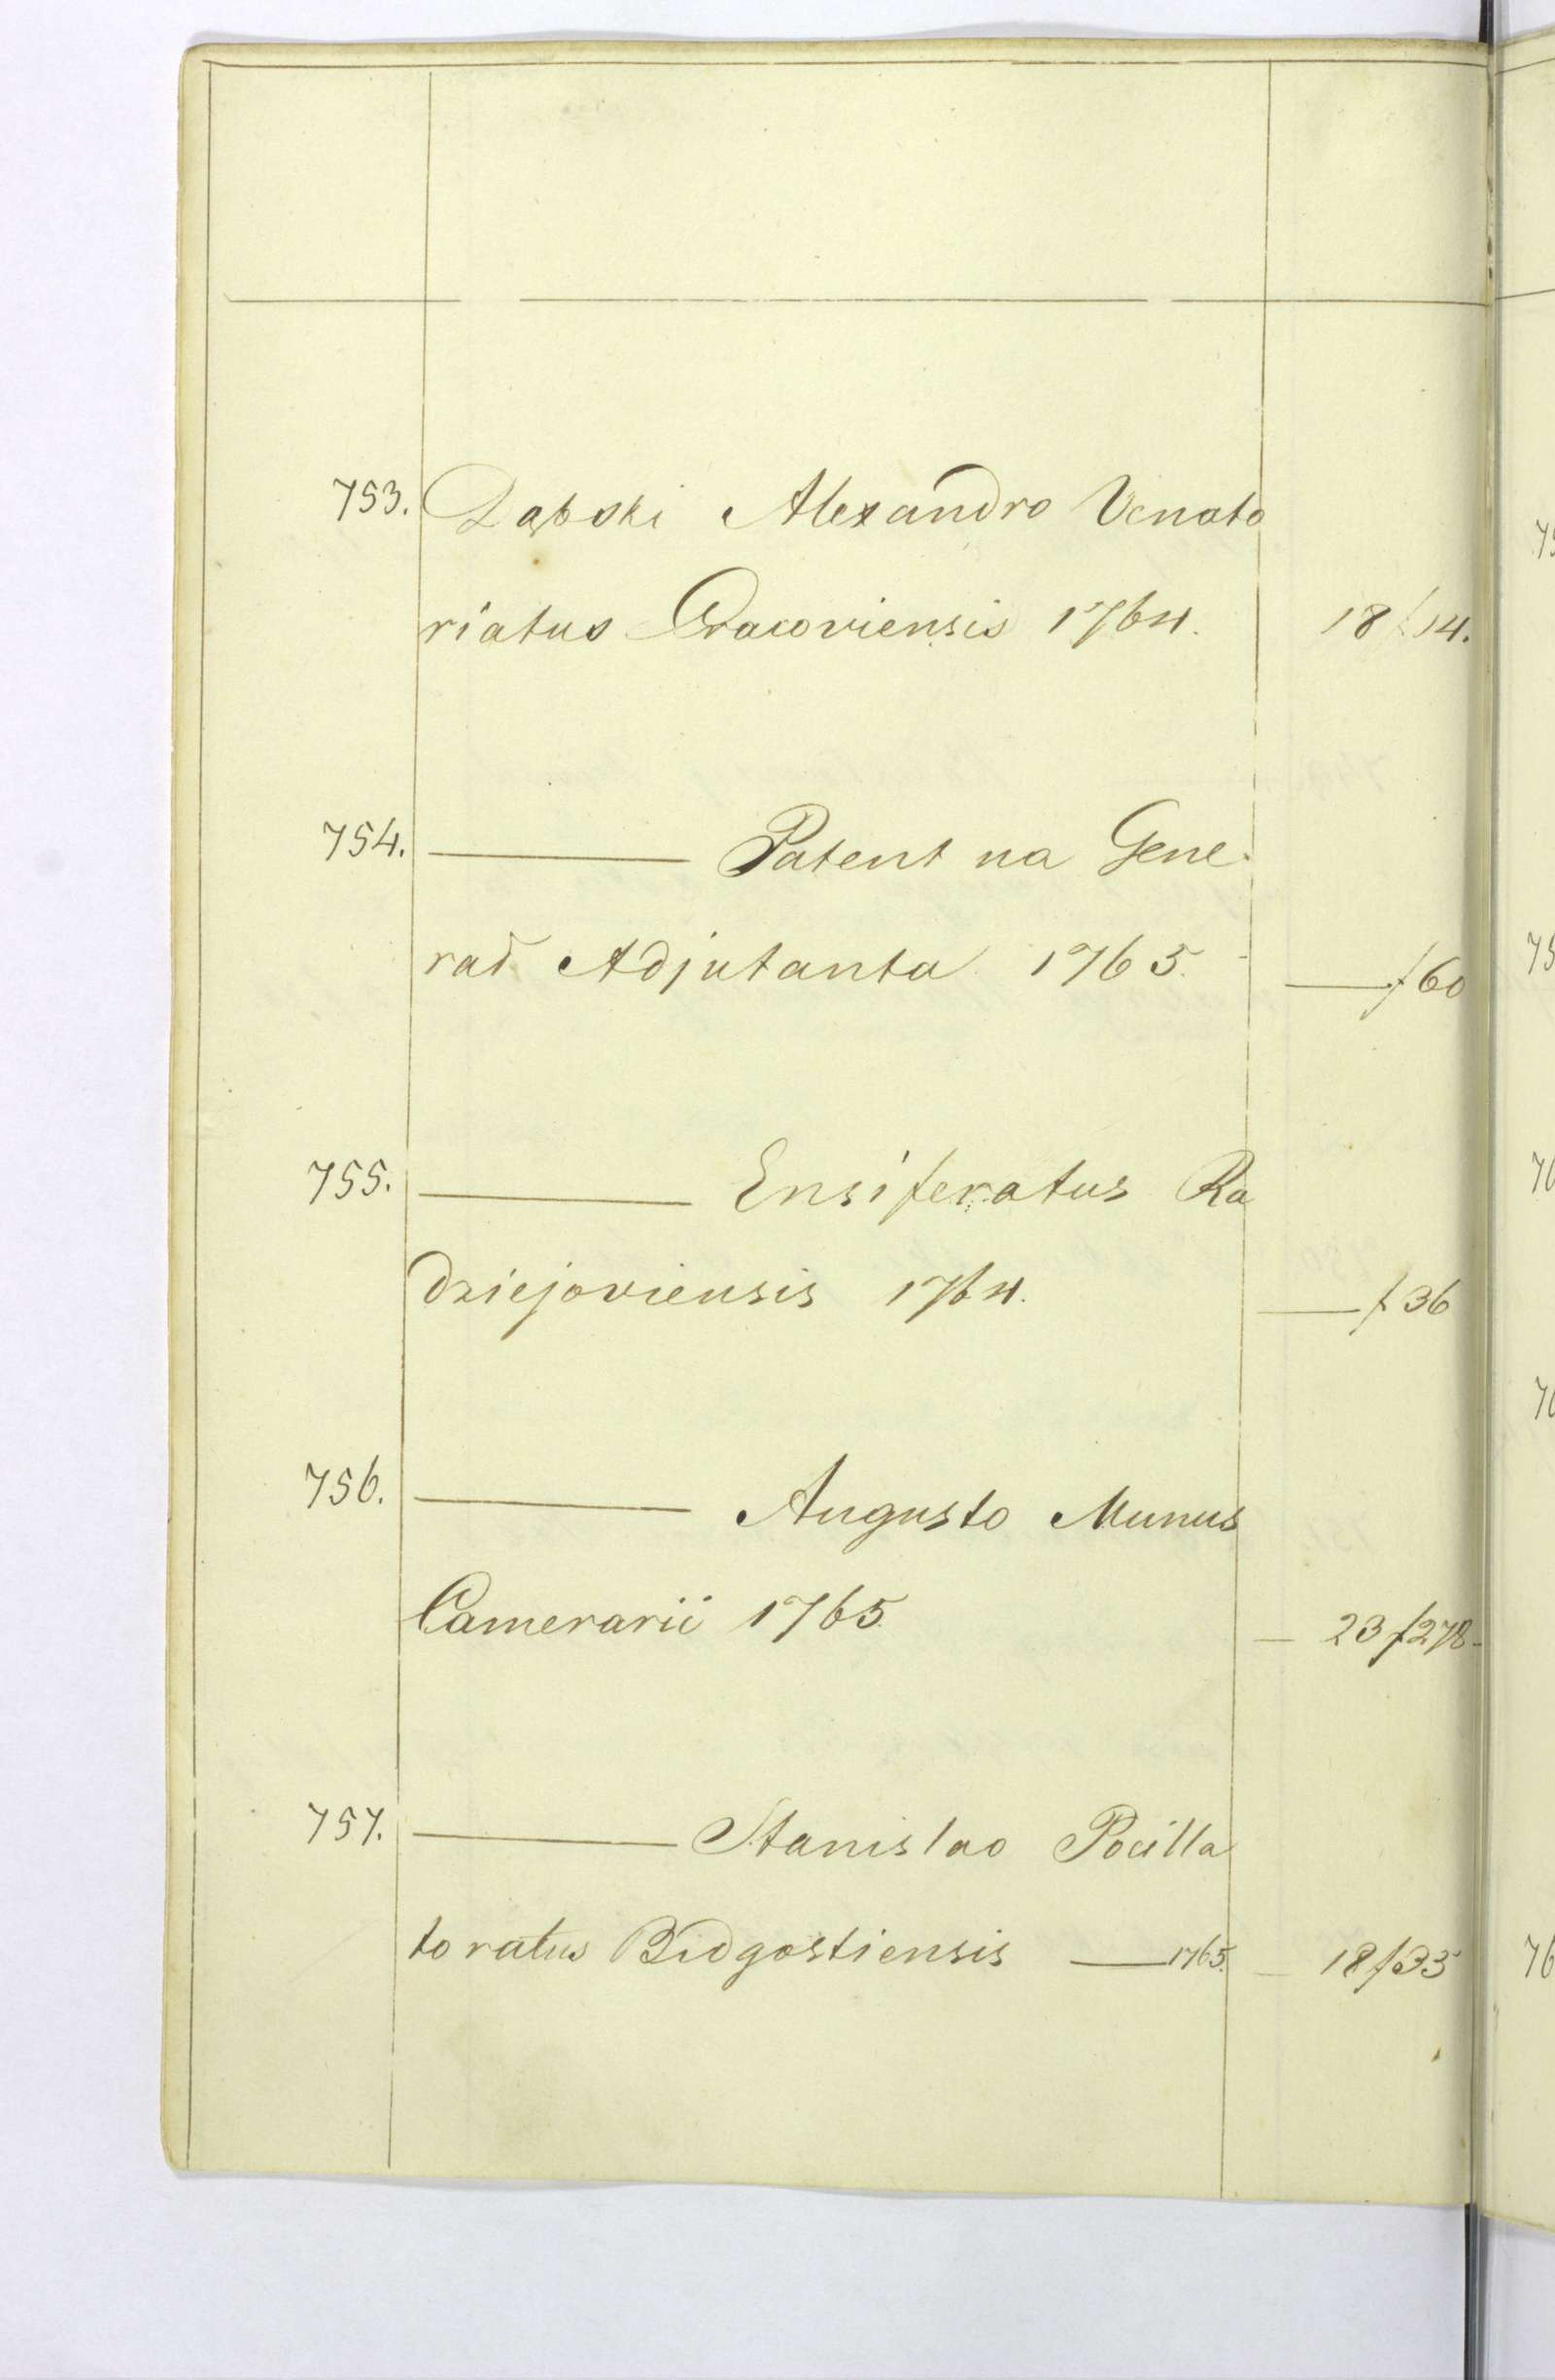 753. Dąbski Alexandro Venato
riatus Cracoviensis 1764. 18 f 14.
754. ——— Patent na Gene-
rał Adjutanta 1765. — f 60
755. ——— Ensiferatus Ra
dziejoviensis 1764. — f 36
756. ——— Augusto Munus
Camerarii 1765 — 23 f 278-
757. ——— Stanislao Pocilla
toratus Bidgostiensis — 1765. — 18 f 33